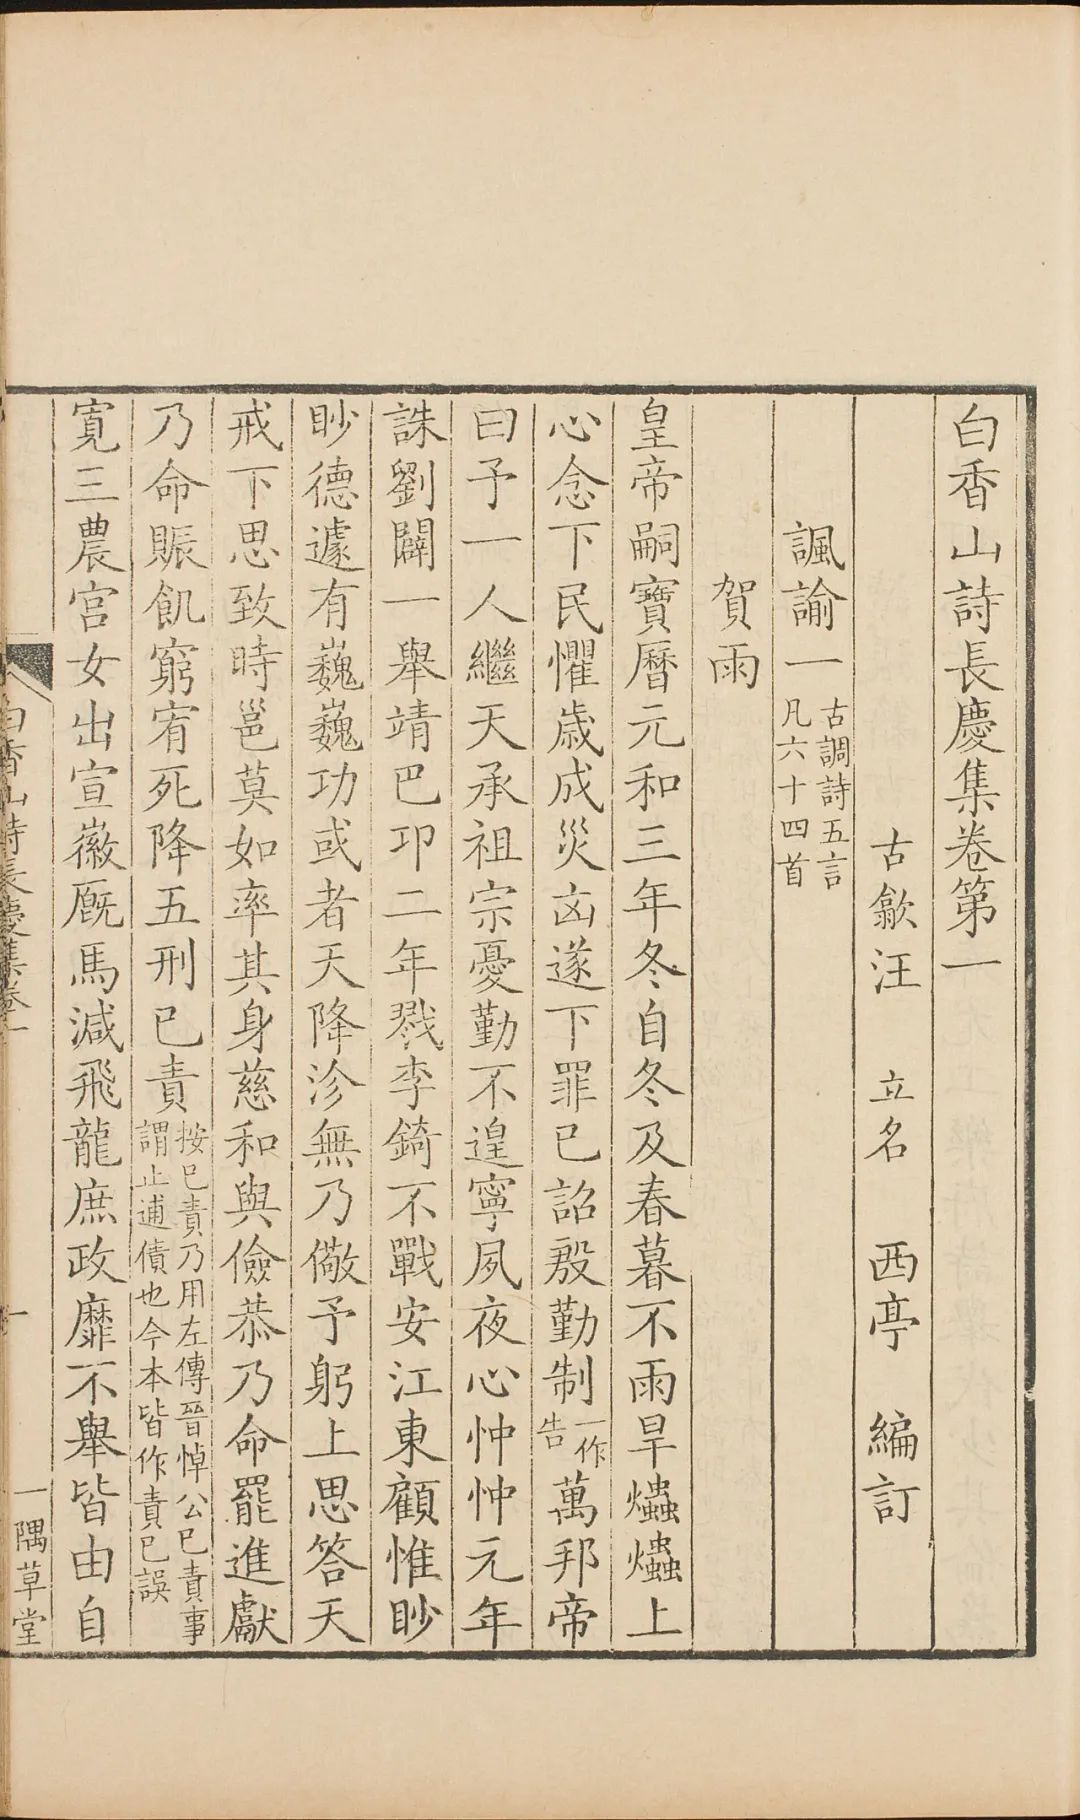 白香山詩長慶集卷第一
古歙汪 立名 西亭 編訂
諷諭一 古調詩五言
凡六十四首
賀雨
皇帝嗣寶曆元和三年冬自冬及春暮不雨旱爞爞上
心念下民懼歲成災凶遂下罪已詔殷勤制一作告萬邦帝
曰予一人繼天承祖宗憂勤不遑寧夙夜心忡忡元年
誅劉闢一舉靖巴卭二年戮李錡不戰安江東顧惟眇
眇德遽有巍巍功或者天降沴無乃儆予躬上思答天
戒下思致時邕莫如率其身慈和與儉恭乃命罷進獻
乃命賑飢窮宥死降五刑已責按已責乃用左傳晉悼公已責事
謂止逋債也今本皆作責已誤
寛三農宮女出宣徽厩馬減飛龍庶政靡不舉皆由自
白香山詩長慶集卷一
一
一隅草堂